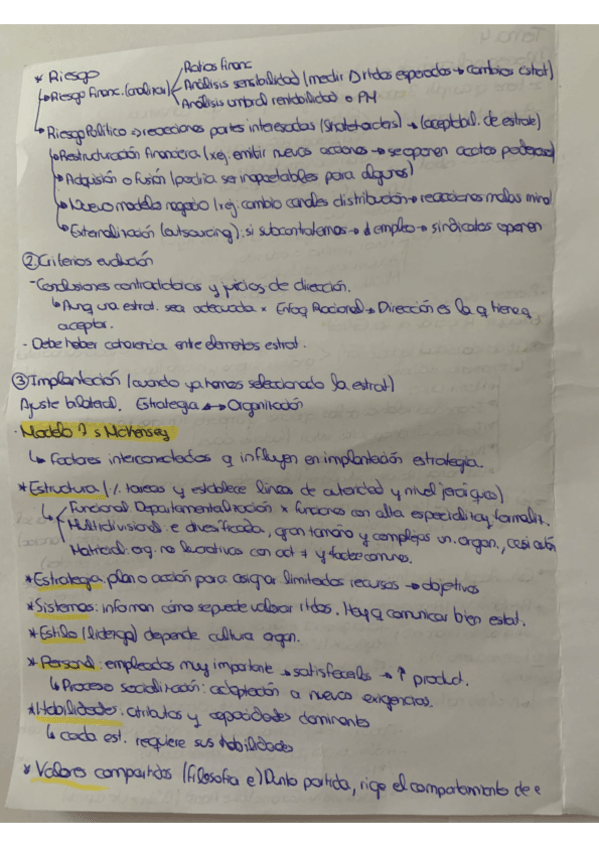 * Riesgo
↳ Riesgo Financ. (analizar)
Ratios Financ
Análisis sensibilidad (medir D rtdos esperados → cambios estrat)
Análisis umbral rentabilidad o PM
↳ Riesgo Político => reacciones partes interesadas (Stakeholders) → (aceptabil. de estrate)
↳ Restructuración financiera (x ej. emitir nuevas acciones → se oponen acctos poderosos)
↳ Adquisión o fusión (podría ser inaceptables para algunos)
↳ Nuevo modelo negocio (x ej: cambio canales distribución → reacciones malas
↳ Externalización (outsourcing): si subcontratamos → ↓ empleo → sindicatos oponen
② Criterios evalución
- Conclusiones contradictorias y juicios de dirección.
↳ Aunq una estrat. sea adecuada x Enfoq Racional → Dirección es la q tiene q
aceptar.
- Debe haber coherencia entre elementos estrat.
③ Implantación (cuando ya hemos seleccionado la estrat)
Ajuste bilateral. Estrategia ↔ Organización
· Modelo 7 s McKensey
↳ Factores interconectados q influyen en implantación estrategia.
* Estructura (÷ tareas y establece líneas de autoridad y nivel jerárquico)
↳ Funcional: Departamentalización x funciones con alta especialità y formaliz.
Multidivisional: e diversificada, gran tamaño y complejas un. organ.,
Matricial: org. no lucrativas con act ≠ y factor comunes.
* Estrategia: plan o acción para asignar limitados recursos → objetivos
* Sistemas: informan cómo se puede valorar rtdos. Hay q comunicar bien estrat.
* Estilo (liderazgo) depende cultura organ.
* Personal: empleados muy importante → satisfacerlos → ↑ product.
↳ Proceso socialización: adaptación a nuevas exigencias.
* Habilidades: atributos y capacidades dominante
↳ cada est. requiere sus habilidades
* Valores compartidos (filosofía e) Punto partida, rige el comportamiento de e